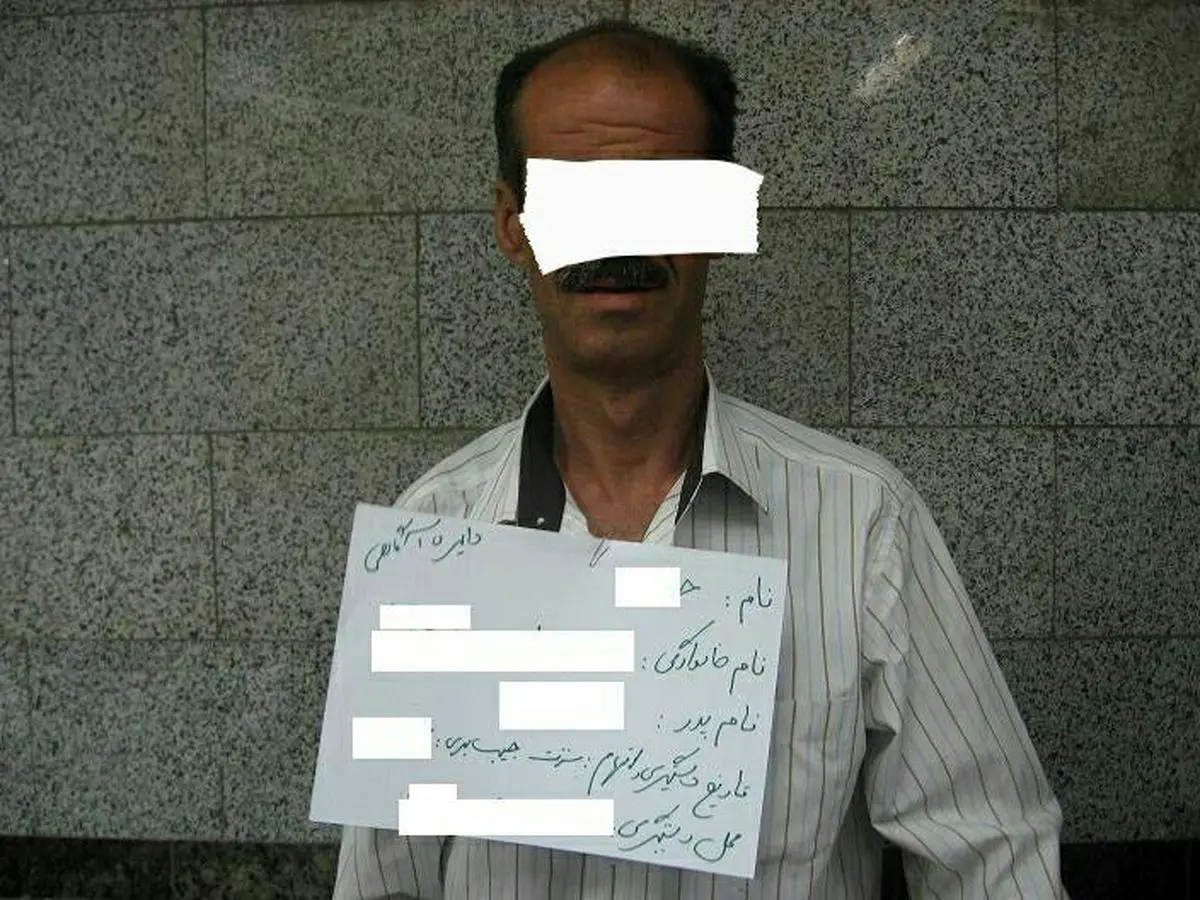 دایره ۵ آگاهی
نام : حـ
نام خانوادگی :
نام پدر :
تاریخ دستگیری و اتهام : سرقت جیب بری :
محل دستگیری :